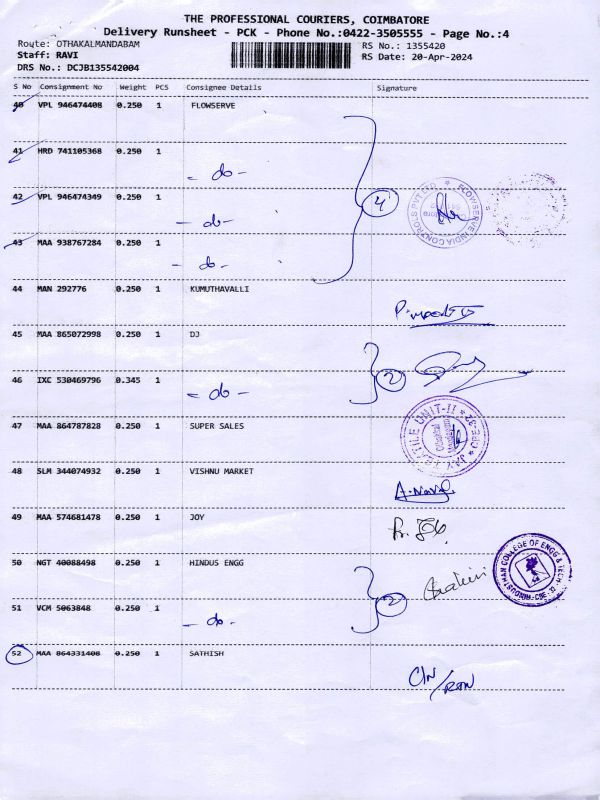 THE PROFESSIONAL COURIERS, COIMBATORE
Delivery Runsheet - PCK - Phone No.:0422-3505555 - Page No.:4
Route: OTHAKALMANDABAM RS No.: 1355420
Staff: RAVI RS Date: 20-Apr-2024
DRS No.: DCJB135542004
S No Consignment No Weight PCS Consignee Details Signature
40 VPL 946474408 0.250 1 FLOWSERVE
41 HRD 741105368 0.250 1
- do -
42 VPL 946474349 0.250 1
4
- do -
43 MAA 938767284 0.250 1
- do -
FLOWSERVE INDIA CONTROLS PVT LTD
44 MAN 292776 0.250 1 KUMUTHAVALLI
45 MAA 865072998 0.250 1 DJ
46 IXC 530469796 0.345 1
2
- do -
47 MAA 864787828 0.250 1 SUPER SALES
TEXTILE UNIT-II
48 SLM 344074932 0.250 1 VISHNU MARKET
49 MAA 574681478 0.250 1 JOY
50 NGT 40088498 0.250 1 HINDUS ENGG
HINDUSTHAN COLLEGE OF ENGG & TECH
51 VCM 5063848 0.250 1
2
- do -
52 MAA 864331408 0.250 1 SATHISH